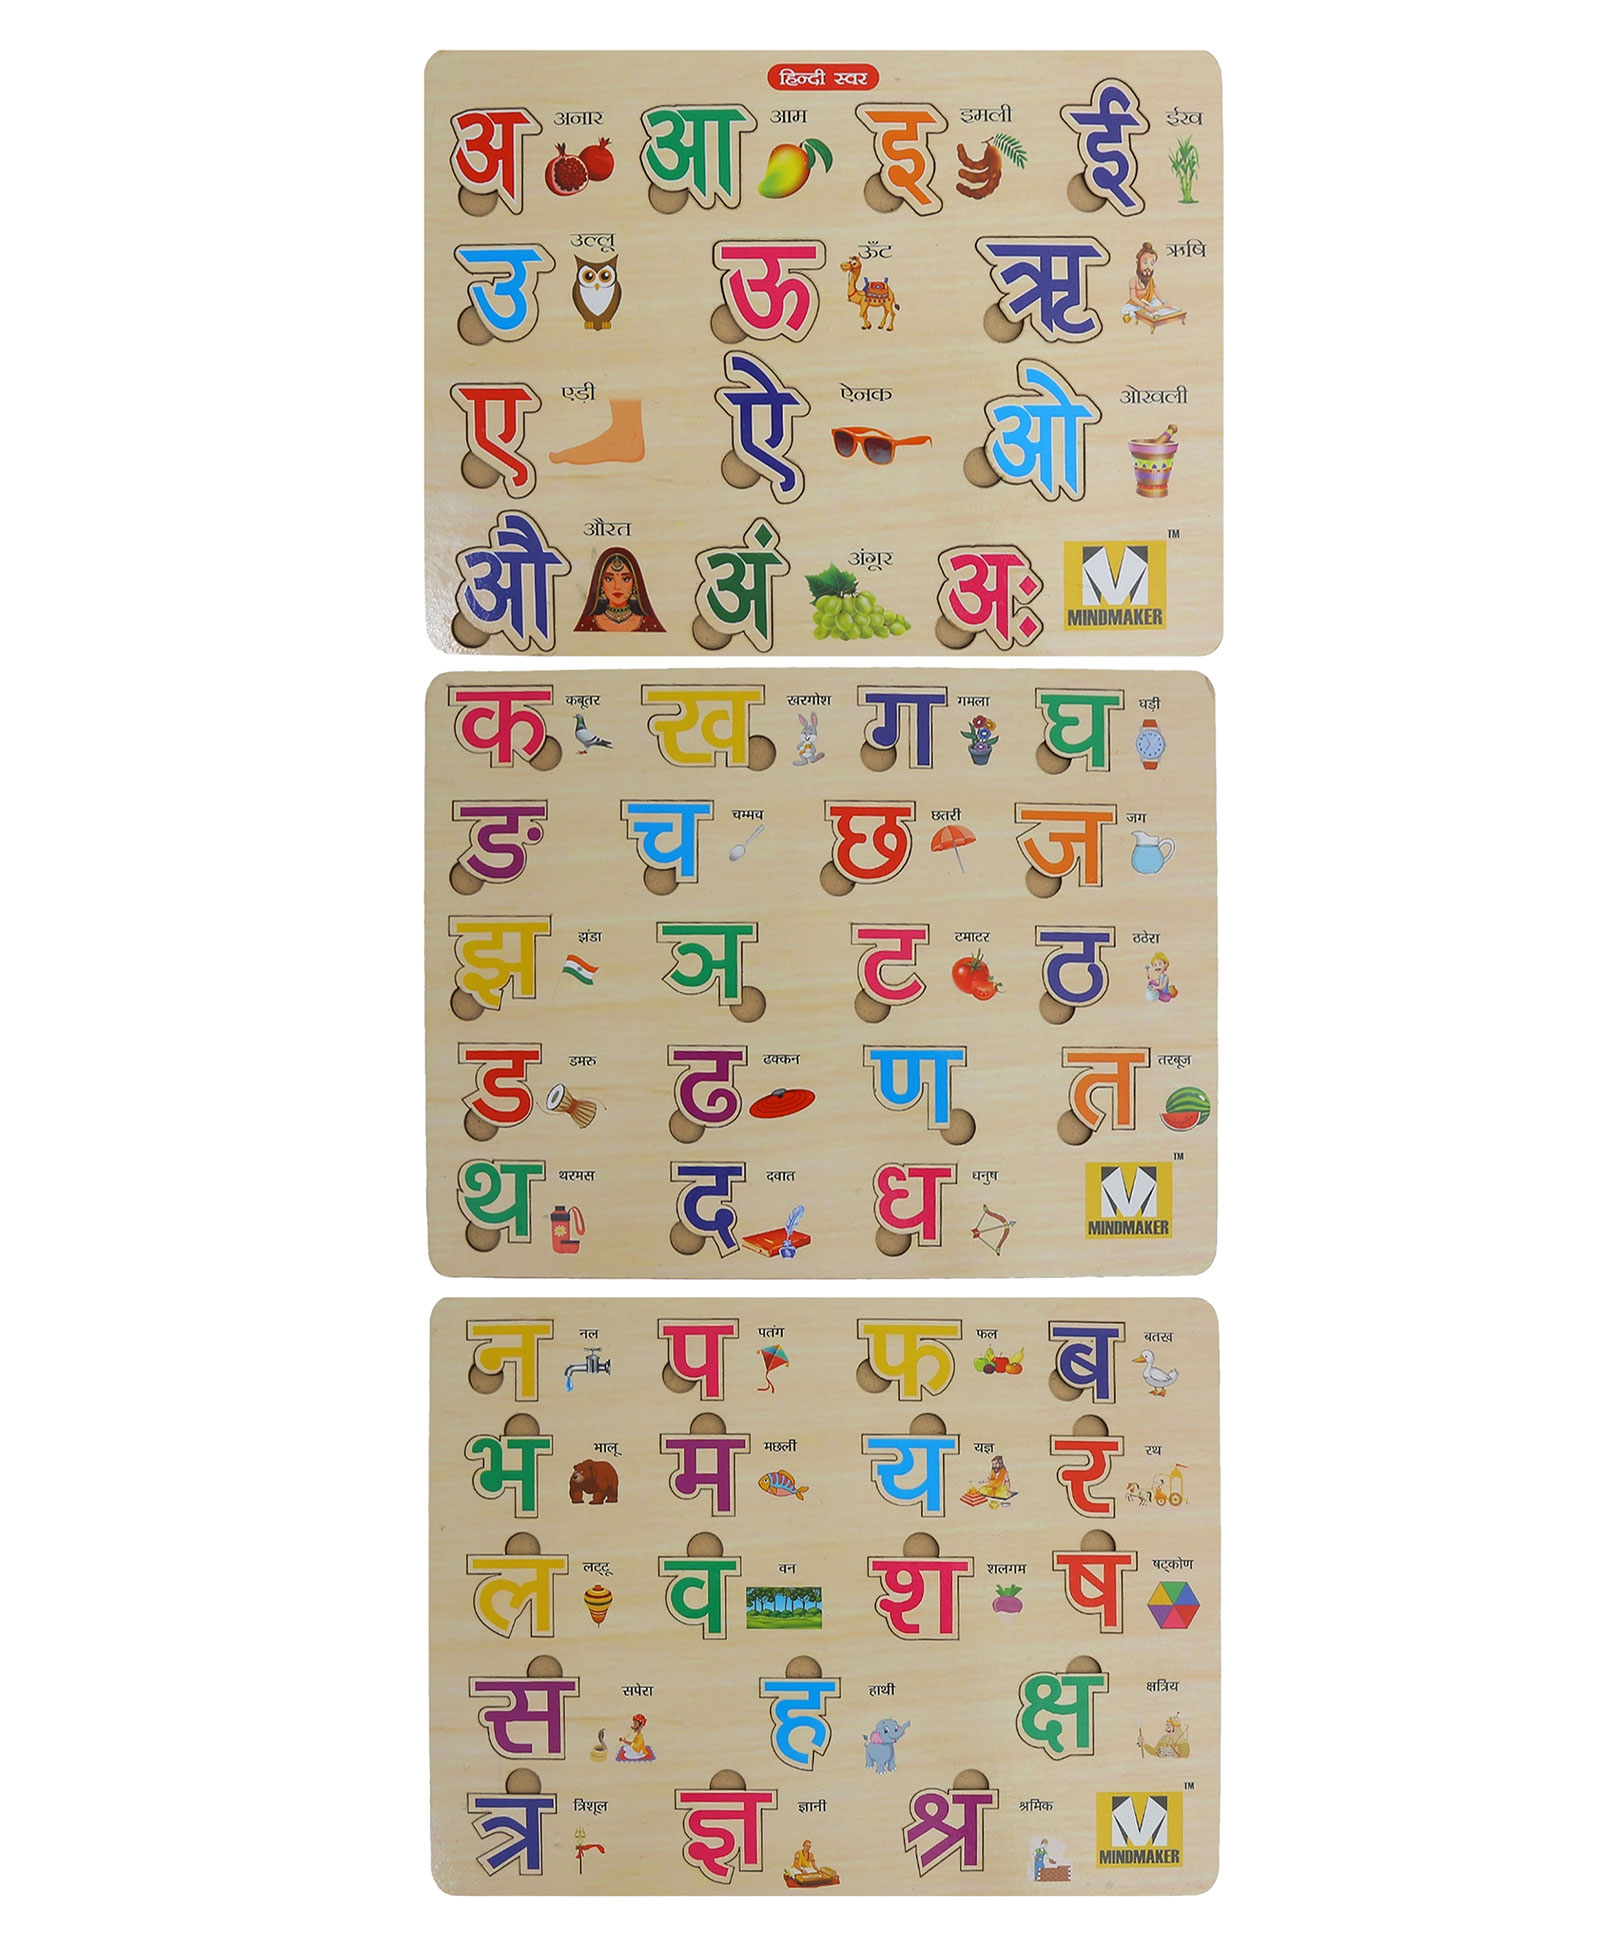 हिन्दी स्वर
अ अनार आ आम इ इमली ई ईख
उ उल्लू ऊ ऊँट ऋ ऋषि
ए एड़ी ऐ ऐनक ओ ओखली
औ औरत अं अंगूर अः TM
MINDMAKER
क कबूतर ख खरगोश ग गमला घ घड़ी
ङ च चम्मच छ छतरी ज जग
झ झंडा ञ ट टमाटर ठ ठठेरा
ड डमरु ढ ढक्कन ण त तरबूज
थ थरमस द दवात ध धनुष TM
MINDMAKER
न नल प पतंग फ फल ब बतख
भ भालू म मछली य यज्ञ र रथ
ल लट्टू व वन श शलगम ष षट्कोण
स सपेरा ह हाथी क्ष क्षत्रिय
त्र त्रिशूल ज्ञ ज्ञानी श्र श्रमिक TM
MINDMAKER